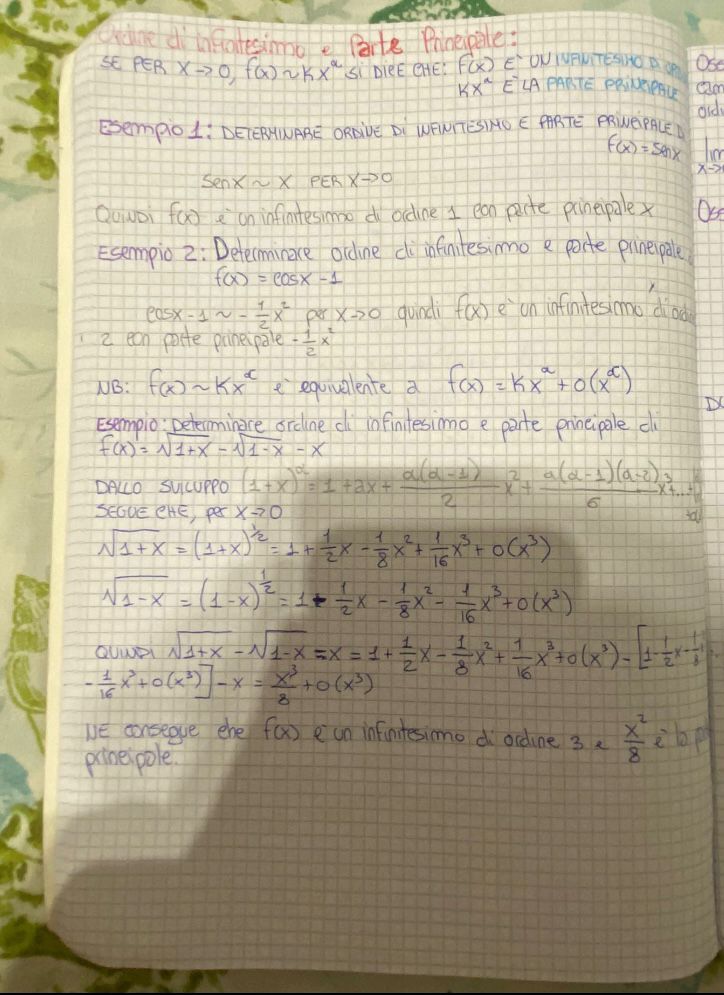 Ordine di infinitesimo e Parte Principale:
SE PER X→0, f(x) ~ Kx^α SI DICE CHE: f(x) E' UN INFINITESIMO D
Kx^α E' LA PARTE PRINCIPALE
Esempio 1: DETERMINARE ORDINE DI INFINITESIMO E PARTE PRINCIPALE D
f(x) = senx
senx ~ x PER X→0
QUINDI f(x) e' un infinitesimo di ordine 1 con parte principale x
Esempio 2: Determinare ordine di infinitesimo e parte principale
f(x) = cosx - 1
cosx - 1 ~ - 1/2 x² per x→0 quindi f(x) e' un infinitesimo di
2 con parte principale - 1/2 x²
NB: f(x) ~ Kx^α e' equivalente a f(x) = Kx^α + o(x^α)
Esempio: Determinare ordine di infinitesimo e parte principale di
f(x) = √1+x - √1-x - x
DALLO SVILUPPO (1+x)^α = 1 + αx + α(α-1)/2 x² + α(α-1)(α-2)/6 x³ + ...
SEGUE CHE, per x→0
√1+x = (1+x)^1/2 = 1 + 1/2 x - 1/8 x² + 1/16 x³ + o(x³)
√1-x = (1-x)^1/2 = 1 - 1/2 x - 1/8 x² - 1/16 x³ + o(x³)
QUINDI √1+x - √1-x - x = 1 + 1/2 x - 1/8 x² + 1/16 x³ + o(x³) - [1 - 1/2 x - 1/8
- 1/16 x³ + o(x³)] - x = x³/8 + o(x³)
NE consegue che f(x) e' un infinitesimo di ordine 3 e x²/8 e' la
principale.
Oss
lim
x→
Oss